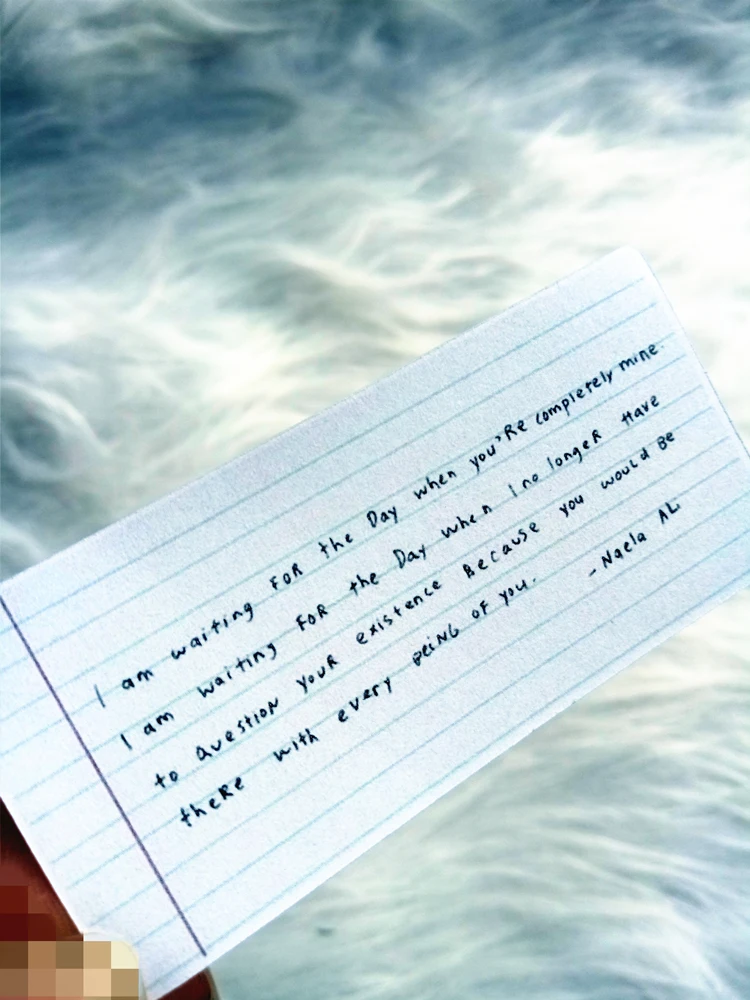 I am waiting FOR the Day when you'Re completely mine.
I am waiting FOR the Day when I no longeR Have
to QuestioN YouR existence Because you would Be
theRe with every BeiNG oF you.
-Naela AL.